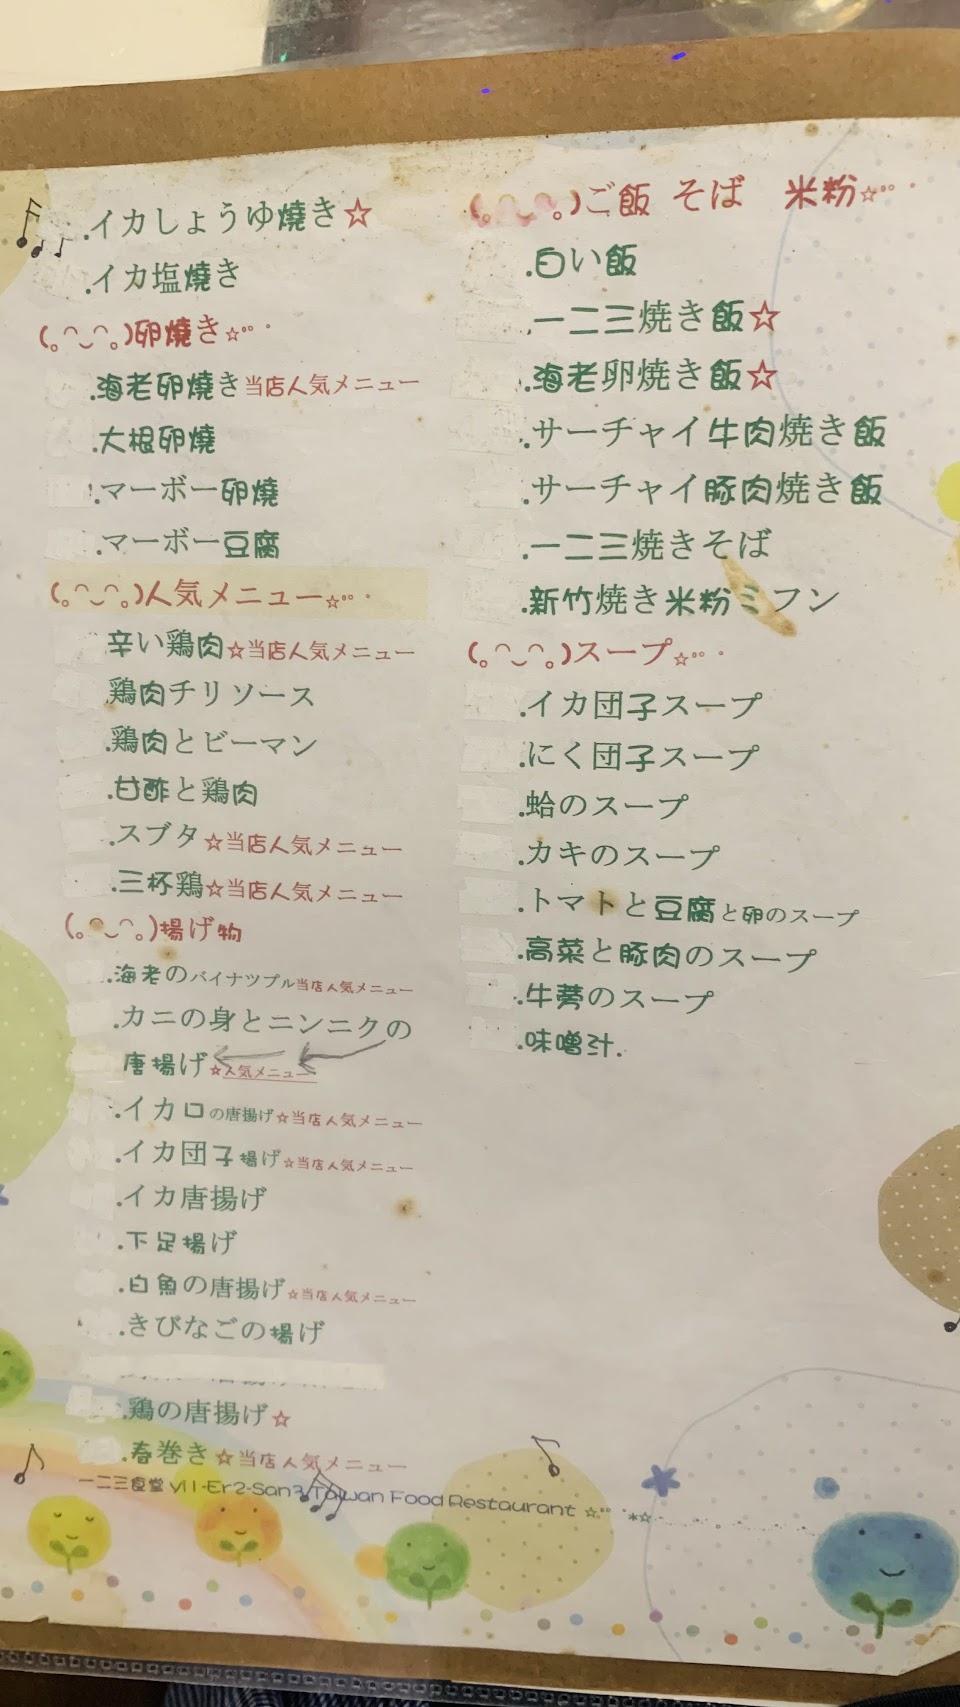 .イカしょうゆ燒き☆
.イカ塩燒き
(。◠‿◠。)卵燒き☆°°˙
.海老卵燒き当店人気メニュー
.大根卵燒
.マーボー卵燒
.マーボー豆腐
(。◠‿◠。)人気メニュー☆°°˙
辛い鶏肉☆当店人気メニュー
鶏肉チリソース
.鶏肉とビーマン
.甘酢と鶏肉
.スブタ☆当店人気メニュー
.三杯鶏☆当店人気メニュー
(。◠‿◠。)揚げ物
.海老のバイナツプル当店人気メニュー
.カニの身とニンニクの
唐揚げ☆人気メニュー
.イカロの唐揚げ☆当店人気メニュー
.イカ団子揚げ☆当店人気メニュー
.イカ唐揚げ
.下足揚げ
.白魚の唐揚げ☆当店人気メニュー
.きびなごの揚げ
.鶏の唐揚げ☆
.春巻き☆当店人気メニュー
一二三食堂 YI1-Er2-San3 Taiwan Food Restaurant ☆°°˙*☆
(。◠‿◠。)ご飯 そば 米粉☆°°˙
.白い飯
.一二三焼き飯☆
.海老卵焼き飯☆
.サーチャイ牛肉焼き飯
.サーチャイ豚肉焼き飯
.一二三焼きそば
.新竹焼き米粉ミフン
(。◠‿◠。)スープ☆°°˙
.イカ団子スープ
.にく団子スープ
.蛤のスープ
.カキのスープ
.トマトと豆腐と卵のスープ
.高菜と豚肉のスープ
.牛蒡のスープ
.味噌汁.